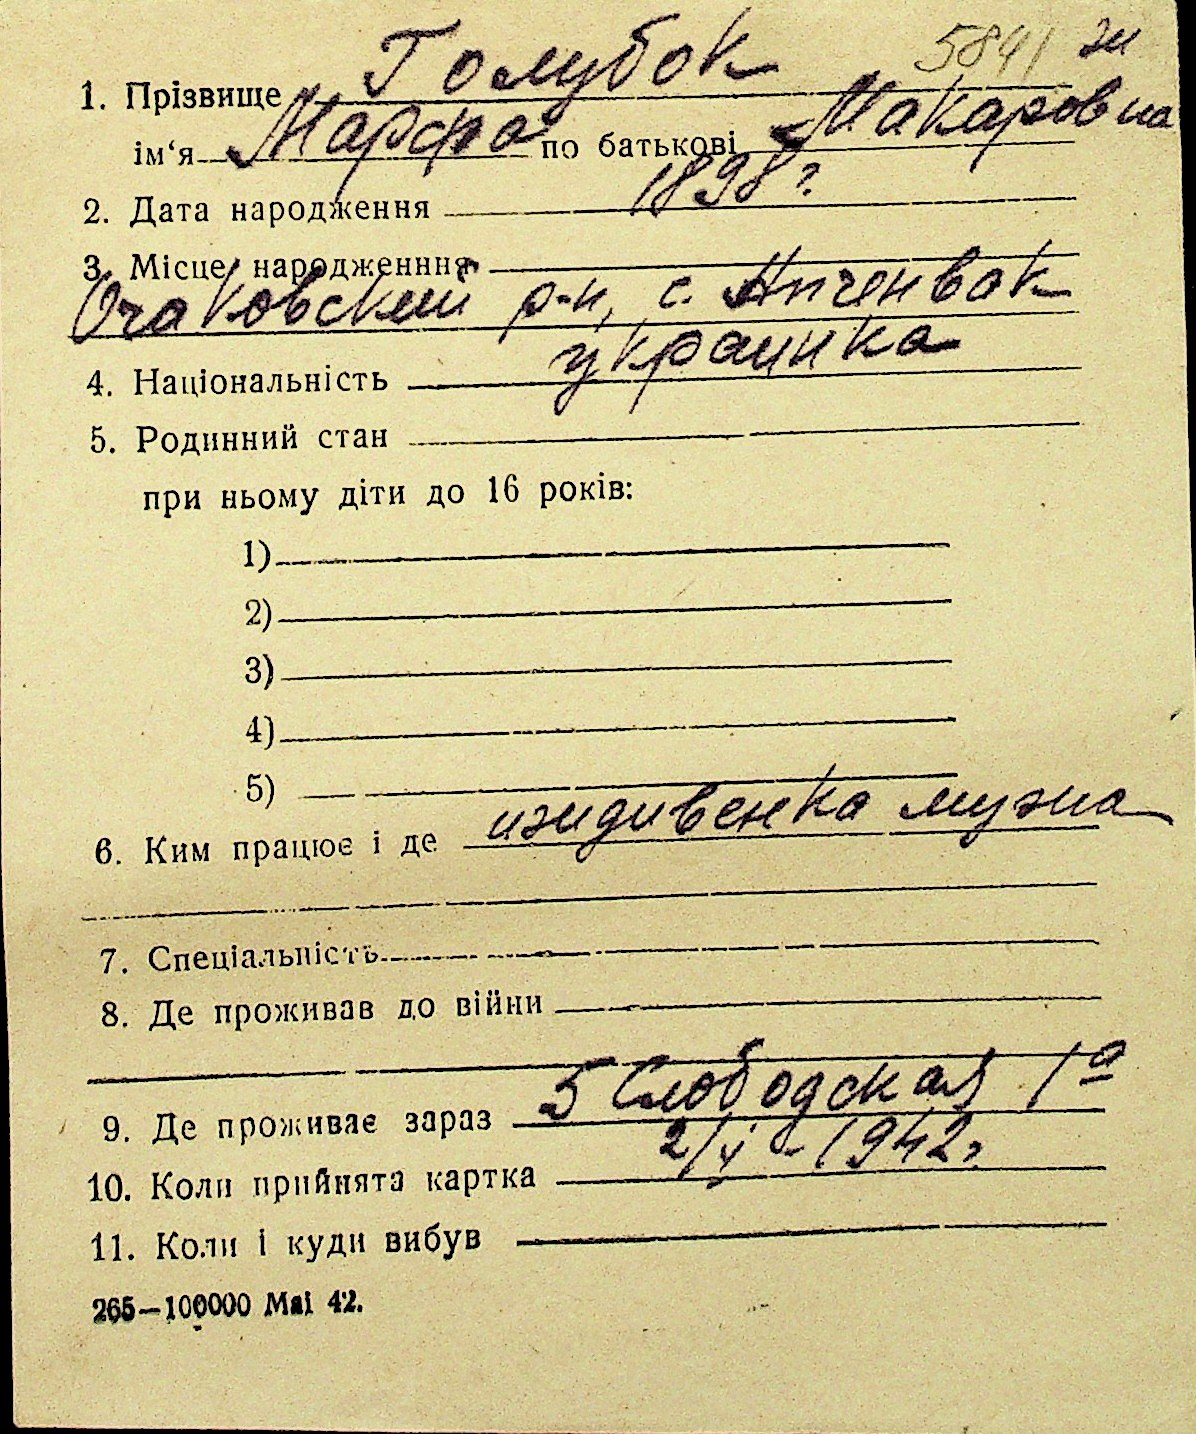 5841 ж
1. Прізвище Голубок
ім‘я Марфа по батькові Макаровна
2. Дата народження 1898 г
3. Місце народженння
Очаковский р-н, с. Анчекрак
4. Національність украинка
5. Родинний стан
при ньому діти до 16 років:
1)
2)
3)
4)
5)
6. Ким працює і де иждивенка мужа
7. Спеціальність
8. Де проживав до війни
9. Де проживає зараз 5 Слободская 1а
10. Коли прийнята картка 1942г
11. Коли і куди вибув
265—100000 Mai 42.